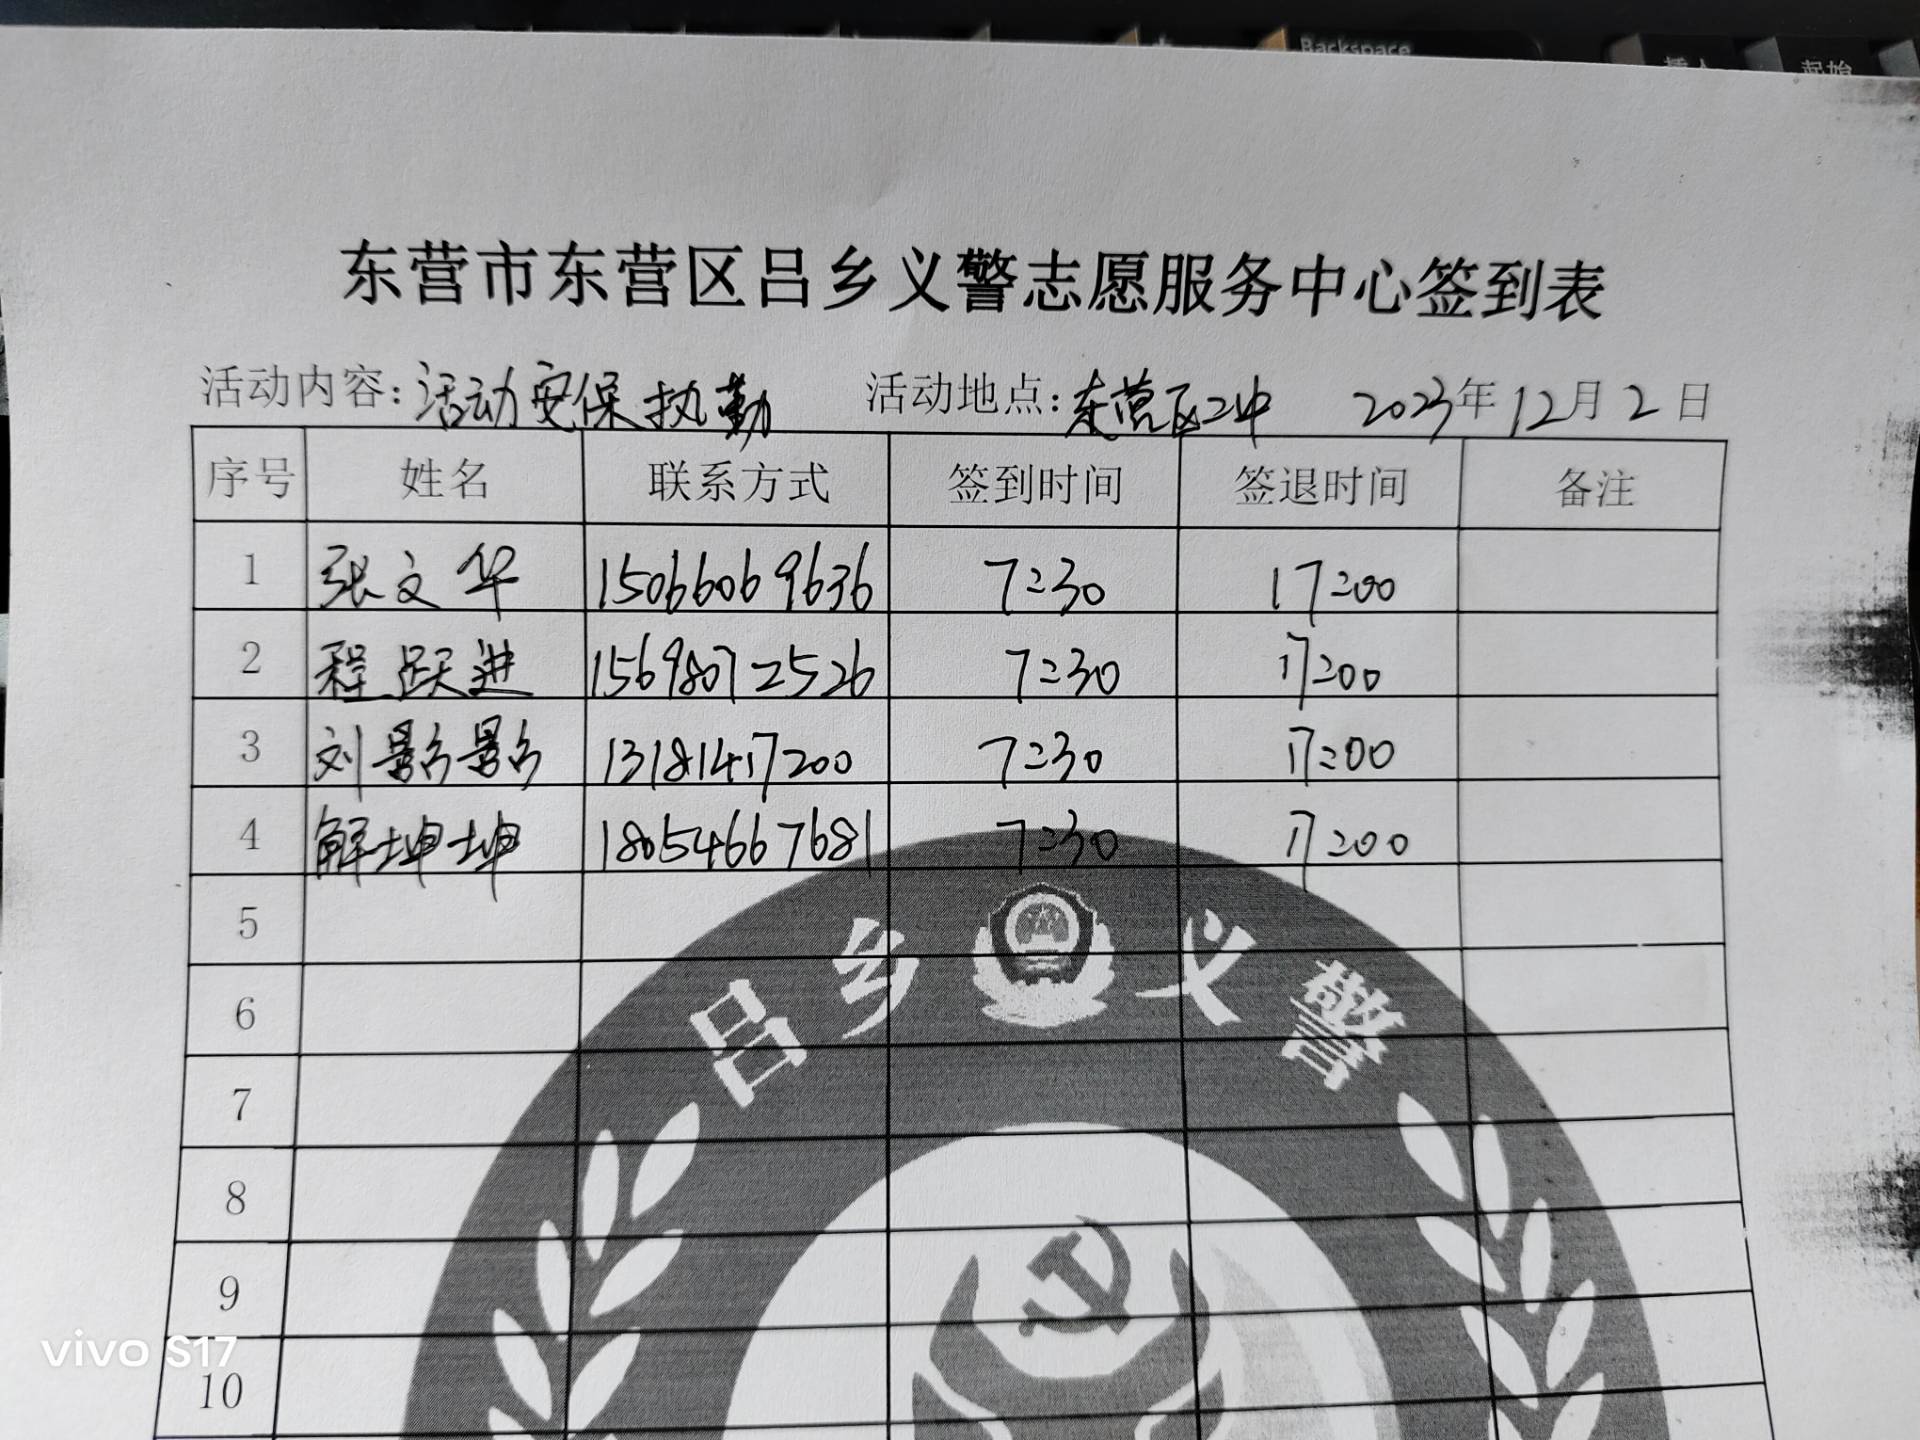 Backspace
起始
东营市东营区吕乡义警志愿服务中心签到表
活动内容：活动安保执勤 活动地点：东营区二中 2023年12月2日
序号 姓名 联系方式 签到时间 签退时间 备注
1 张文华 15066069636 7:30 17:00
2 程跃进 15698072526 7:30 17:00
3 刘影影 13181417200 7:30 17:00
4 解坤坤 18054667681 7:30 17:00
5
吕乡义警
6
7
8
9
10
vivo S17